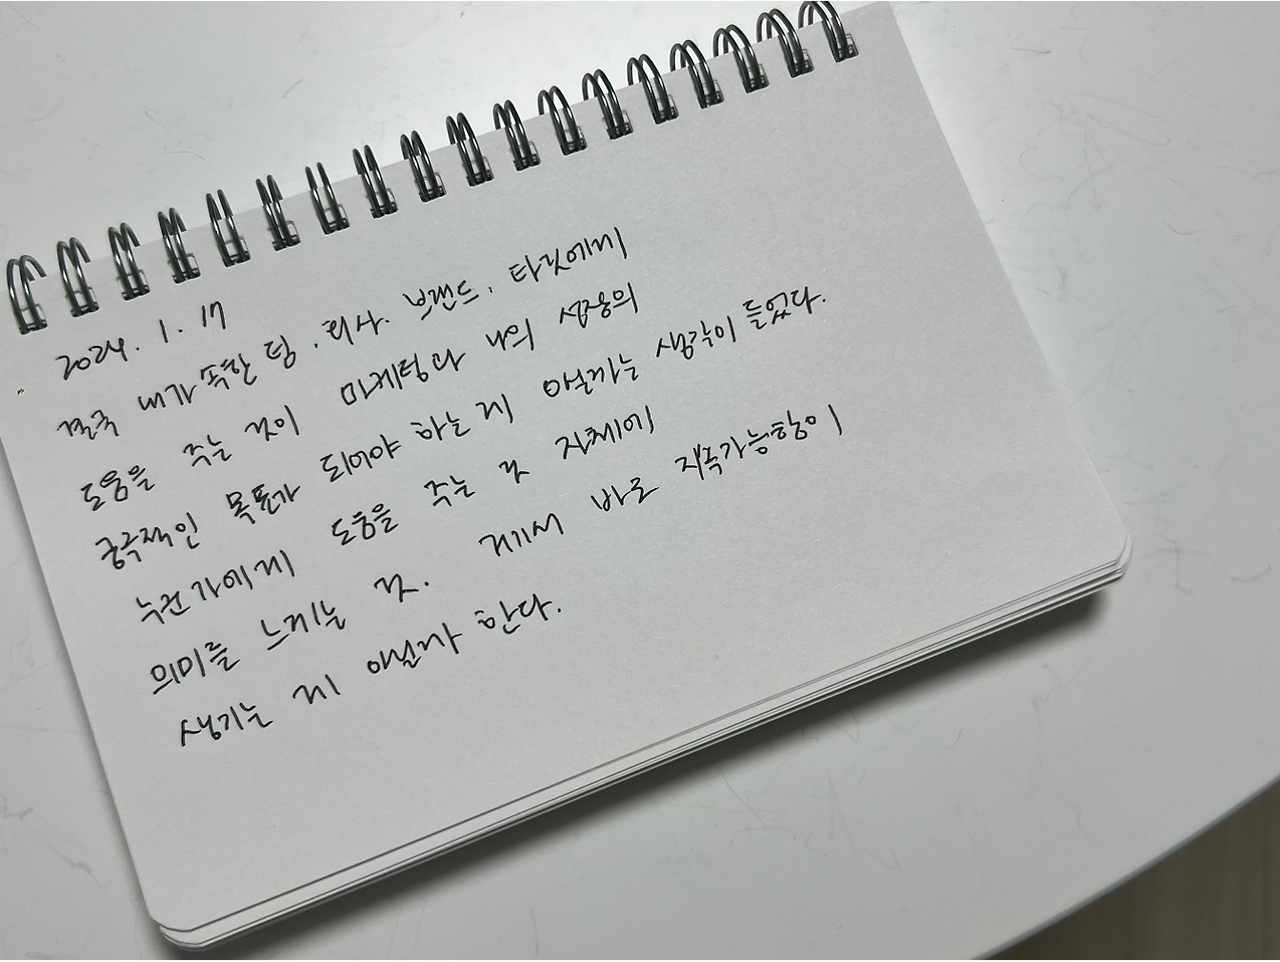 2024. 1. 17
결국 내가 속한 팀. 회사. 브랜드. 타깃에게
도움을 주는 것이 마케팅과 나의 성장의
궁극적인 목표가 되어야 하는게 아닐까는 생각이 들었다.
누군가에게 도움을 주는 것 자체에
의미를 느끼는 것. 거기서 바로 지속가능함이
생기는 게 아닐까 한다.